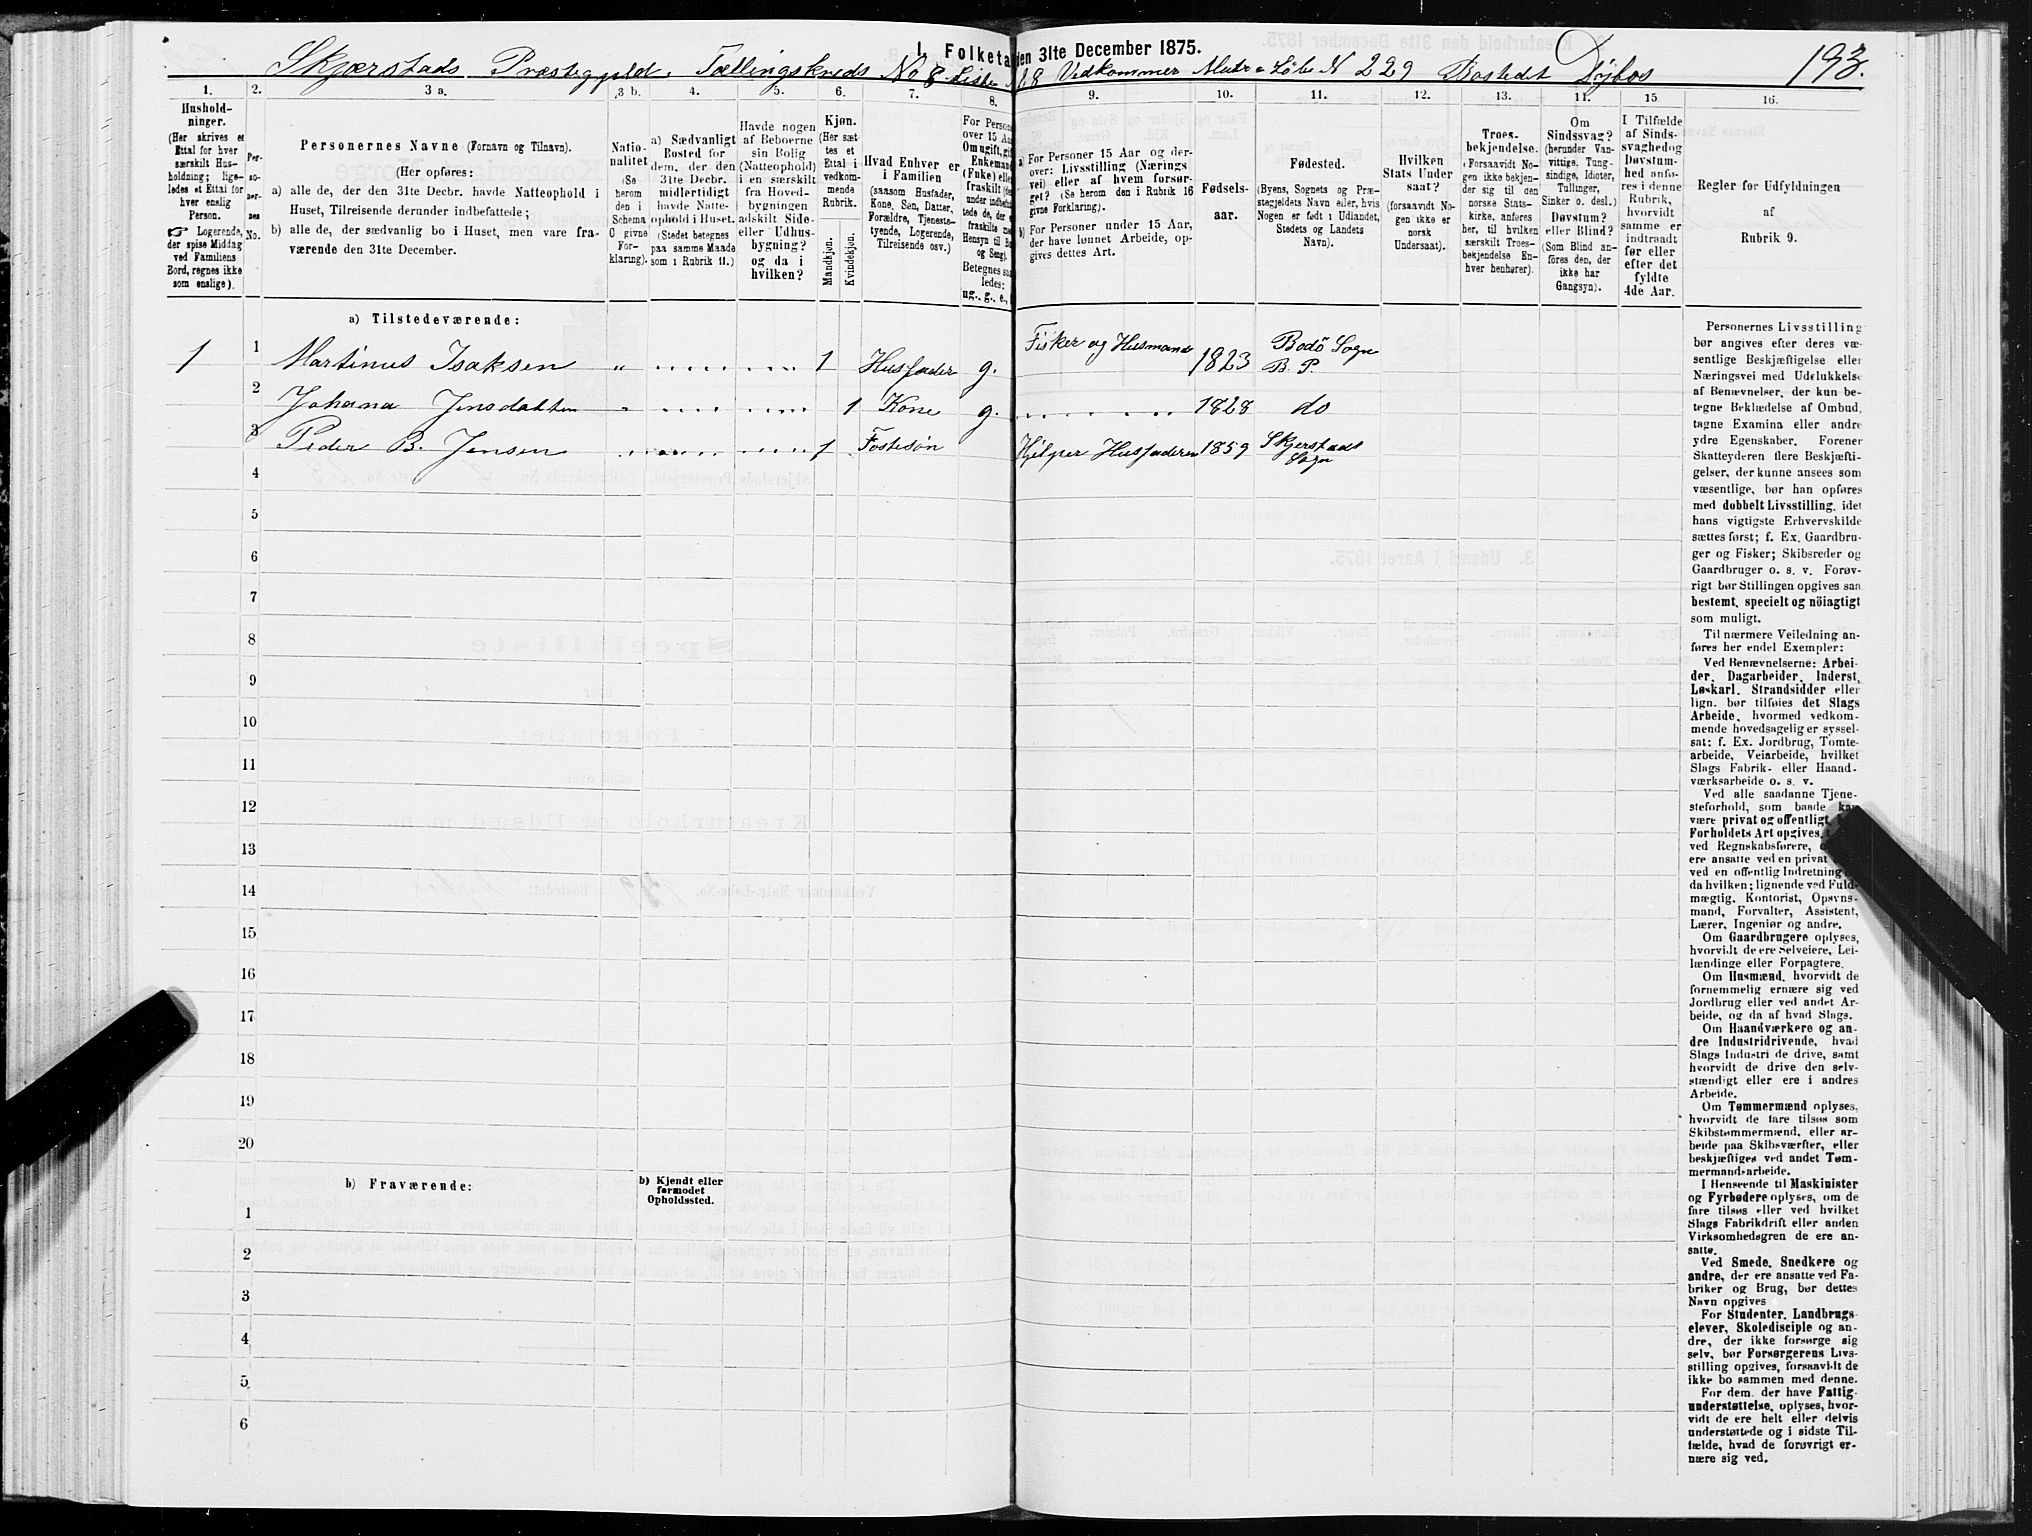 I. Folketa den 31te December 1875.
Skjærstads Præstegjeld. Tællingskreds No 8. Liste 18 Vedkommer Matr = Löbe N 229 Bostedet 193.
1. 2. 3 a. 3 b. 4. 5. 6. 7. 8. 9. 10. 11. 12. 13. 11. 15 16.
Hushold-
ninger.
(Her skrives et
Ettal for hver
særskilt Hus-
holdning; lige-
ledes et Ettal for
hver enslig
Person.
Logerende,
der spise Middag
ved Familiens
Bord, regnes ikke
som enslige).
Per-
so-
ner-
nes
No.
Personernes Navne (Fornavn og Tilnavn).
(Her opføres:
a) alle de, der den 31te Decbr. havde Natteophold i
Huset, Tilreisende derunder indbefattede;
b) alle de, der sædvanlig bo i Huset, men vare fra-
værende den 31te December.
Natio-
nalitet
(Se
herom
den i
Schema
C givne
For-
klaring).
a) Sædvanligt
Bosted for
dem, der den
31te Decbr.
midlertidigt
havde Natte-
ophold i Huset.
(Stedet betegnes
paa samme Maade
som i Rubrik 11.)
Havde nogen
af Beboerne
sin Bolig
(Natteophold)
i en særskilt
fra Hoved-
bygningen
adskilt Side-
eller Udhus-
bygning?
og da i
hvilken?
Kjøn.
(Her sæt
tes et
Ettal i
vedkom-
mende
Rubrik.
Mandkjøn.
Kvindekjøn.
Hvad Enhver er
i Familien
(saasom Husfader,
Kone, Søn, Datter,
Forældre, Tjeneste-
tyende, Logerende,
Tilreisende osv.)
For Person
over 15 Aa
Om ugift, gif
Enkeman
(Fuke) elle
fraskilt (de
under indbefat-
tede de, der e
fraskilte me
Hensyn til Bo
og Seng).
Betegnes saa
ledes:
ug., g., e.,
a) For Personer 15 Aar og der-
over: Livsstilling (Nærings
vei) eller af hvem forsør-
get? (Se herom den i Rubrik 16
givne Forklaring).
b) For Personer under 15 Aar,
der have lønnet Arbeide, op-
gives dettes Art.
Fødsels-
aar.
Fødested.
(Byens, Sognets og Præ-
stegjeldets Navn eller, hvis
Nogen er født i Udlandet,
Stedets og Landets
Navn).
Hvilken
Stats Under
saat?
(forsaavidt No-
gen ikke er
norsk
Undersaat).
Troes-
bekjendelse.
(Forsaavidt No-
gen ikke bekjen-
der sig til den
norske Stats-
kirke, anføres
her, til hvilken
særskilt Troes-
bekjendelse En-
hver henhører).
Om
Sindssvag?
(herunder Van-
vittige, Tung-
sindige, Idioter,
Tullinger,
Sinker o. desl.)
Døvstum?
eller Blind?
(Som Blind an-
føres den, der
ikke har
Gangsyn).
I Tilfælde
af Sinds-
svaghed og
Døvstum-
hed anfø-
res i denne
Rubrik,
hvorvidt
samme er
indtraadt
før eller
efter det
fyldte
4de Aar.
Regler for Udfyldningen
af
Rubrik 9.
a) Tilstedeværende:
1 1 Martinus Isaksen 1 Husfader g. Fisker og Husmand 1823 Bodö Sogn
B. P.
2 Johana Jensdatter 1 Kone g. 1828 do
3 Peder B. Jensen 1 Fostesön Hjelper Husfaderen 1859 Skjerstads
Sogn
4
5
6
7
8
9
10
11
12
13
14
15
16
17
18
19
20
b) Fraværende:
b) Kjendt eller
formodet
Opholdssted.
1
2
3
4
5
6
Personernes Livsstilling
bør angives efter deres væ
sentlige Beskjæftigelse eller
Næringsvei med Udelukkelse
af Benævnelser, der kun be-
tegne Beklædelse af Ombud,
tagne Examina eller andre
ydre Egenskaber. Forener
Skatteyderen flere Beskjæfti-
gelser, der kunne ansees som
væsentlige, bør han opføres
med dobbelt Livsstilling, idet
hans vigtigste Erhvervskilde
sættes først; f. Ex. Gaardbru-
ger og Fisker; Skibsreder og
Gaardbruger o. s. v. Forøv-
rigt bør Stillingen opgives saa
bestemt, specielt og nöiagtigt
som muligt.
Til nærmere Veiledning an-
føres her endel Exempler:
Ved Benævnelserne: Arbei-
der, Dagarbeider, Inderst,
Løskarl, Strandsidder eller
lign. bør tilføies det Slags
Arbeide, hvormed vedkom-
mende hovedsagelig er syssel-
sat; f. Ex. Jordbrug, Tomte-
arbeide, Veiarbeide, hvilket
Slags Fabrik- eller Haand-
værksarbeide o. s. v.
Ved alle saadanne Tjene-
steforhold, som baade kan
være privat og offentligt,
Forholdets Art opgives,
ved Regnskabsførere,
ere ansatte ved en privat
ved en offentlig Indretning
da hvilken; lignende ved Fuld-
mægtig, Kontorist, Opsyns-
mand, Forvalter, Assistent,
Lærer, Ingeniør og andre.
Om Gaardbrugere oplyses,
hvorvidt de ere Selveiere, Lei-
lændinge eller Forpagtere.
Om Husmænd, hvorvidt de
fornemmelig ernære sig ved
Jordbrug eller ved andet Ar-
beide, og da af hvad Slags.
Om Haandværkere og an-
dre Industridrivende, hvad
Slags Industri de drive, samt
hvorvidt de drive den selv-
stændigt eller ere i andres
Arbeide.
Om Tømmermænd oplyses,
hvorvidt de fare tilsøs som
Skibstømmermænd, eller ar-
beide paa Skibsværfter, eller
beskjæftiges ved andet Tøm-
mermandsarbeide.
I Henseende til Maskinister
og Fyrbødere oplyses, om de
fare tilsøs eller ved hvilket
Slags Fabrikdrift eller anden
Virksomhedsgren de ere an-
satte.
Ved Smede, Snedkere og
andre, der ere ansatte ved Fa-
briker og Brug, bør dettes
Navn opgives
For Studenter, Landbrugs-
elever, Skoledisciple og an-
dre, der ikke forsørge sig
selv, bør Forsørgerens Livs-
stilling opgives, forsaavidt de
ikke bo sammen med denne.
For dem, der have Fattig-
understøttelse, oplyses, hvor-
vidt de ere helt eller delvis
understøttede og i sidste Til-
fælde, hvad de forøvrigt er-
nære sig ved.